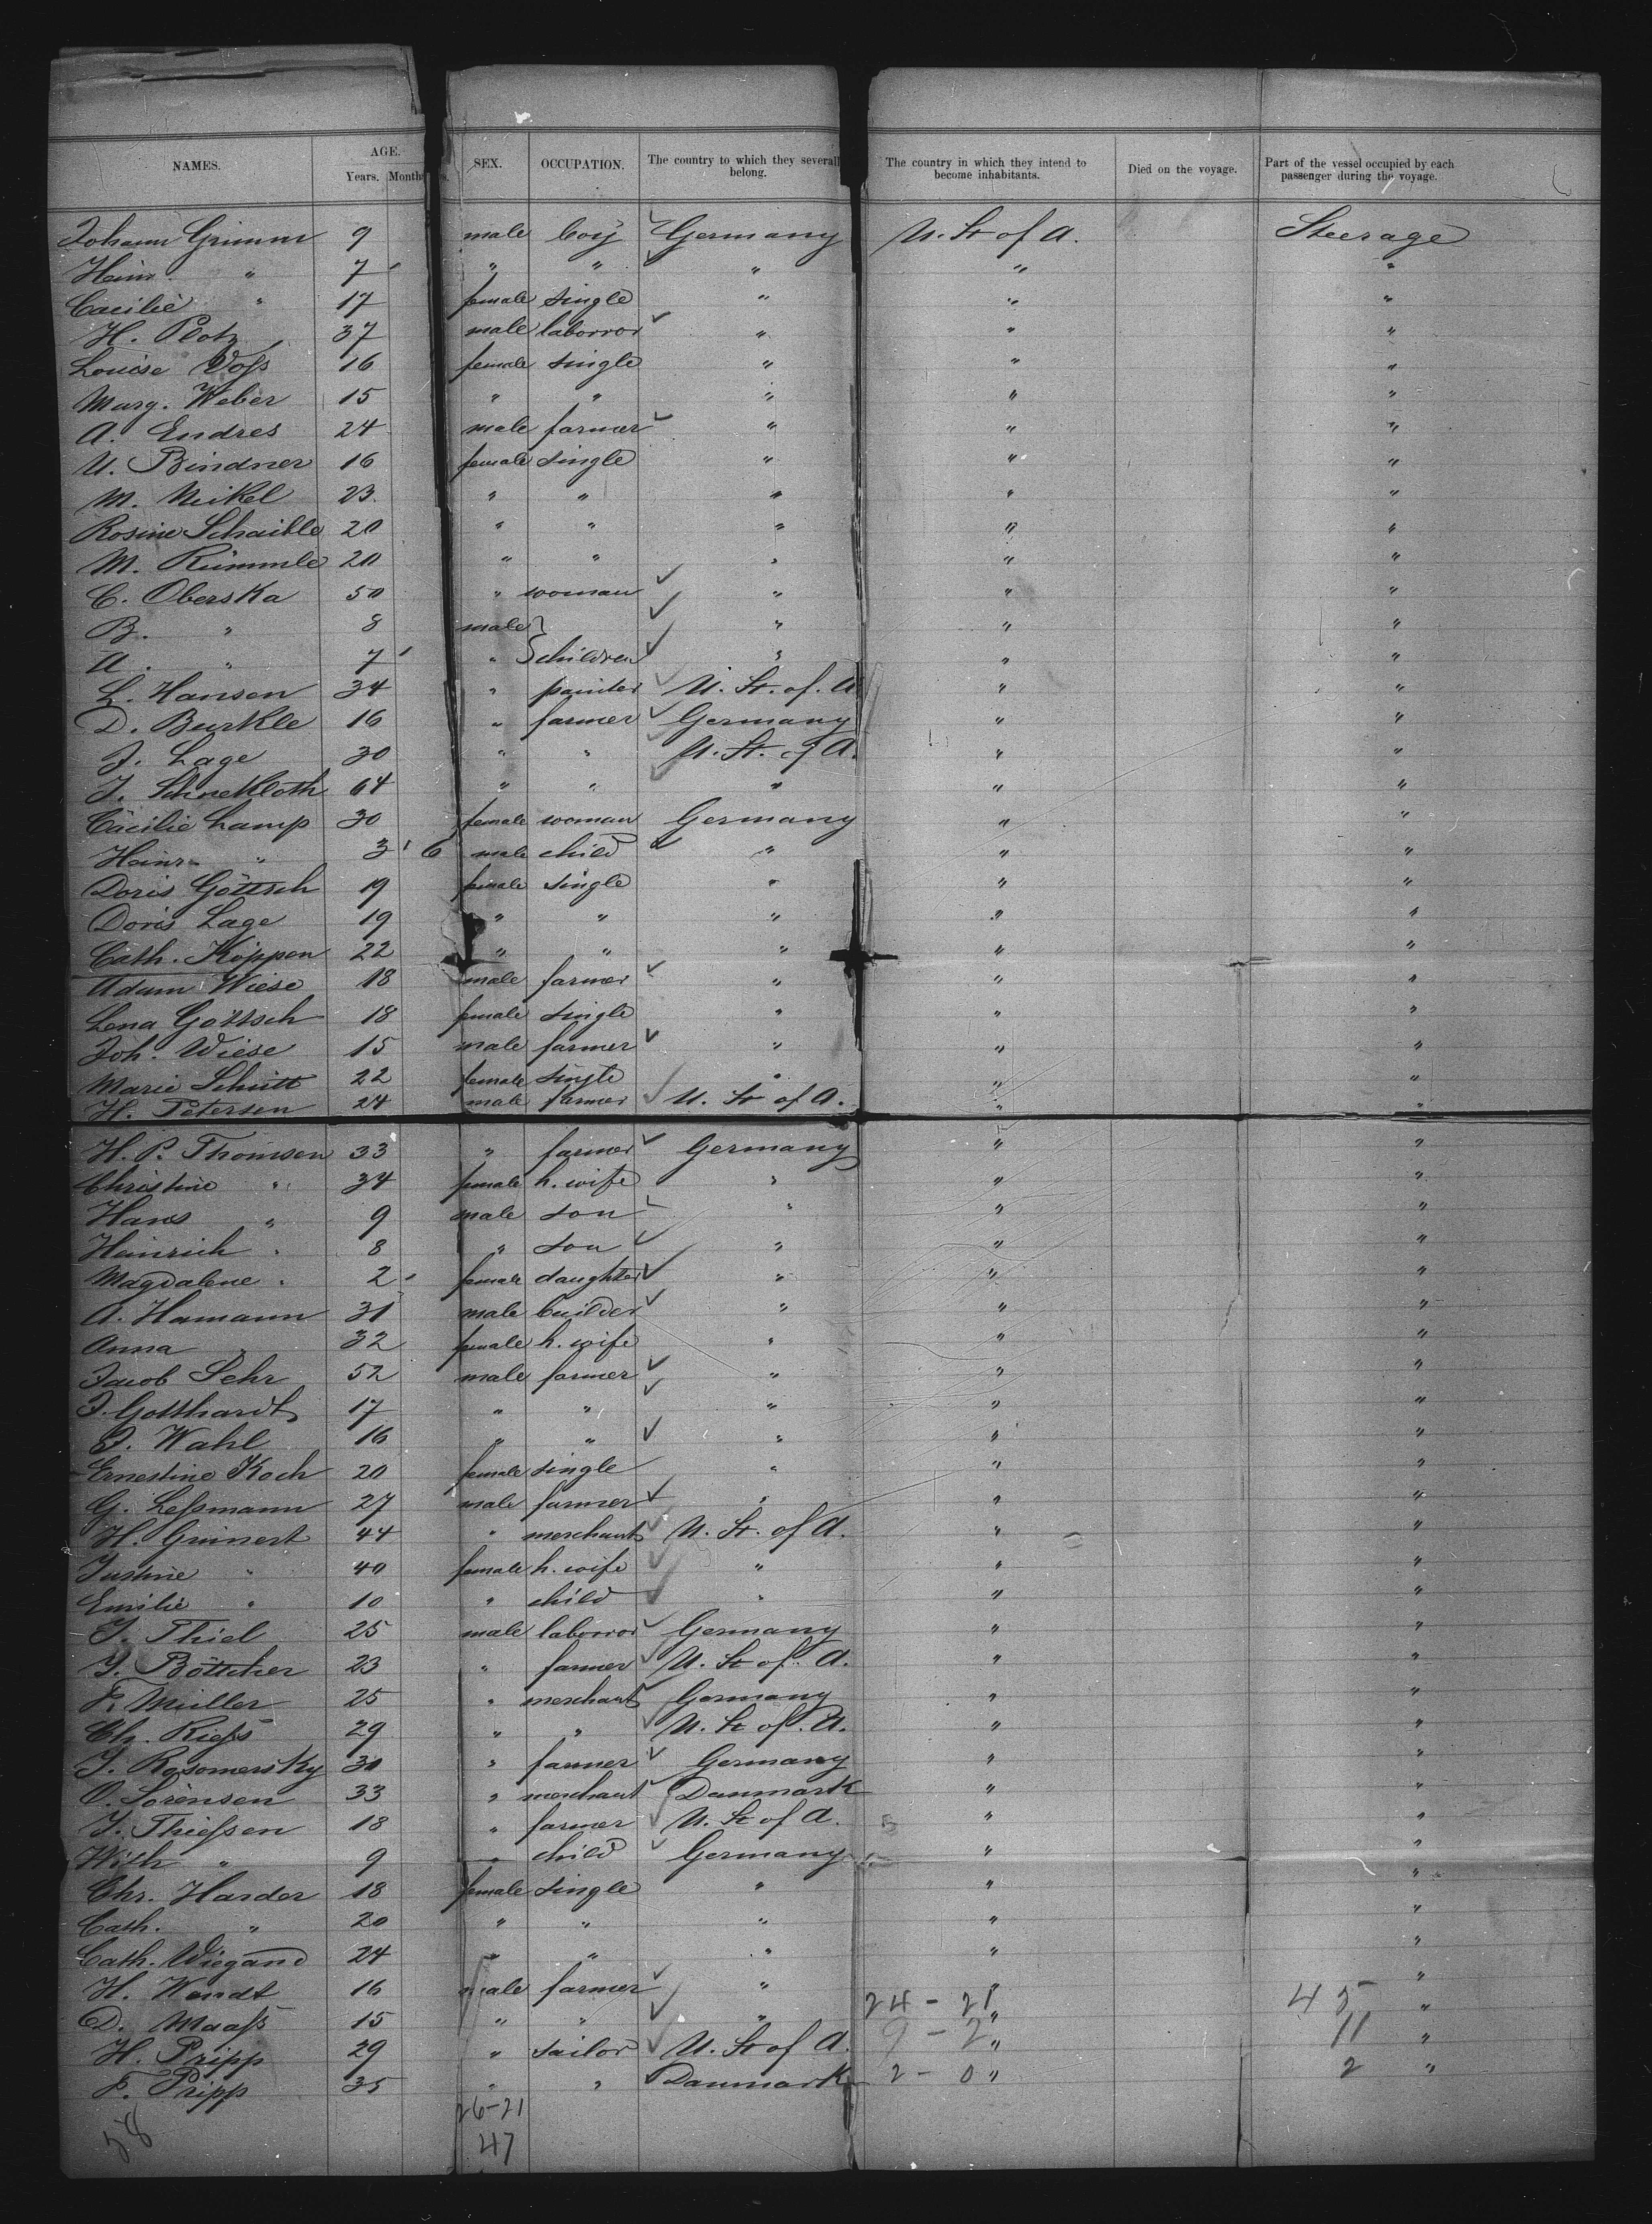 NAMES. AGE. Years. Months. SEX. OCCUPATION. The country to which they severally belong. The country in which they intend to become inhabitants. Died on the voyage. Part of the vessel occupied by each passenger during the voyage.
Johann Grimm 9 male boy Germany U. St of A. Steerage
Heinr. " 7 " " " " "
Cacilie " 17 female single " " "
H. Plotz 37 male laborror " " "
Louise Voss 16 female single " " "
Marg. Weber 15 " " " " "
A. Endres 24 male farmer " " "
U. Bindner 16 female single " " "
M. Meikel 23 " " " " "
Rosine Schaible 20 " " " " "
M. Rümmle 20 " " " " "
C. Oberska 50 " woman " " "
B. " 8 male " " "
A. " 7 " children " " "
L. Hansen 34 " painter U. St. of. A " "
D. Burkle 16 " farmer Germany " "
J. Lage 30 " " U. St. of A. " "
J. Schnekloth 64 " " " " "
Cäcilie Lamp 30 female woman Germany " "
Heinr. " 3 6 male child " " "
Doris Göttsch 19 female single " " "
Doris Lage 19 " " " " "
Cath. Köppen 22 " " " " "
Adam Wiese 18 male farmer " " "
Lena Göttsch 18 female single " " "
Joh. Wiese 15 male farmer " " "
Marie Schütt 22 female single " " "
H. Petersen 24 male farmer U. St of A. " "
H. P. Thomsen 33 " farmer Germany " "
Christine " 34 female h. wife " " "
Hans " 9 male son " " "
Heinrich " 8 " son " " "
Magdalene " 2 female daughter " " "
A. Hamann 31 male builder " " "
Anna " 32 female h. wife " " "
Jacob Sehr 52 male farmer " " "
J. Gotthardt 17 " " " " "
J. Wahl 16 " " " " "
Ernestine Koch 20 female single " " "
G. Lessmann 27 male farmer " " "
H. Grünert 44 " merchant U. St. of A. " "
Justine " 40 female h. wife " " "
Emilie " 10 " child " " "
J. Thiel 25 male laborror Germany " "
J. Böttcher 23 " farmer U. St of A. " "
F. Müller 25 " merchant Germany " "
Ch. Riess 29 " " U. St of. A. " "
J. Rosomersky 30 " farmer Germany " "
O. Sörensen 33 " merchant Danmark " "
J. Thiessen 18 " farmer U. St of A. " "
Wilh " 9 " child Germany " "
Chr. Harder 18 female single " " "
Cath. " 20 " " " " "
Cath. Wiegand 24 " " " " "
H. Wendt 16 male farmer " 24 - 21 " 45 "
D. Maass 15 " " " 9 - 2 " 11 "
H. Pripp 29 " sailor U. St of A. " "
F. Pripp 35 " " Danmark 2 - 0 " 2 "
58 26-21
47